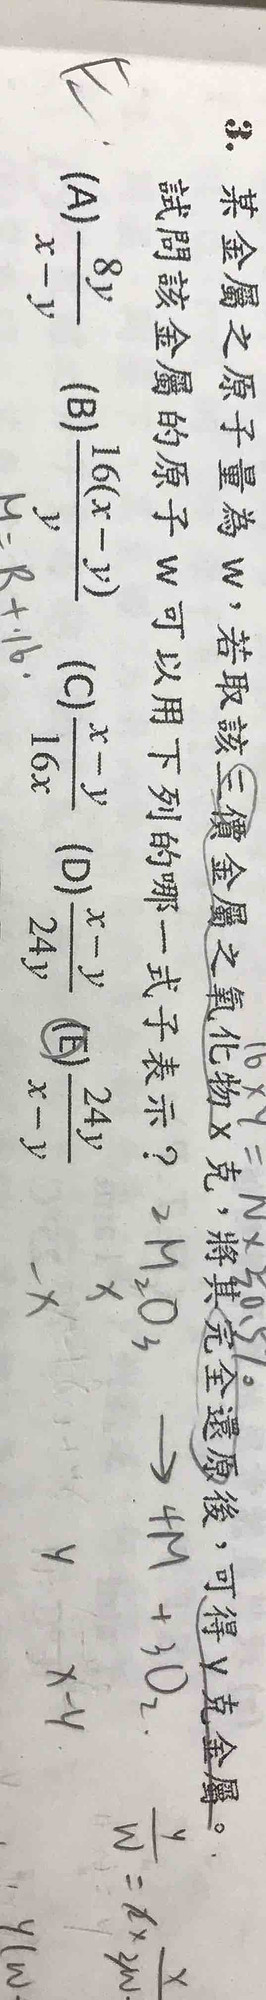 3. 某金屬之原子量為 W，若取該三價金屬之氧化物 x 克，將其完全還原後，可得 y 克金屬。
試問該金屬的原子 W 可以用下列的哪一式子表示？
(A) 8y/(x－y) (B) 16(x－y)/y (C) (x－y)/16x (D) (x－y)/24y (E) 24y/(x－y)
E
M = R + 16.
2M₂O₃ → 4M + 3O₂.
x
-x y x-y